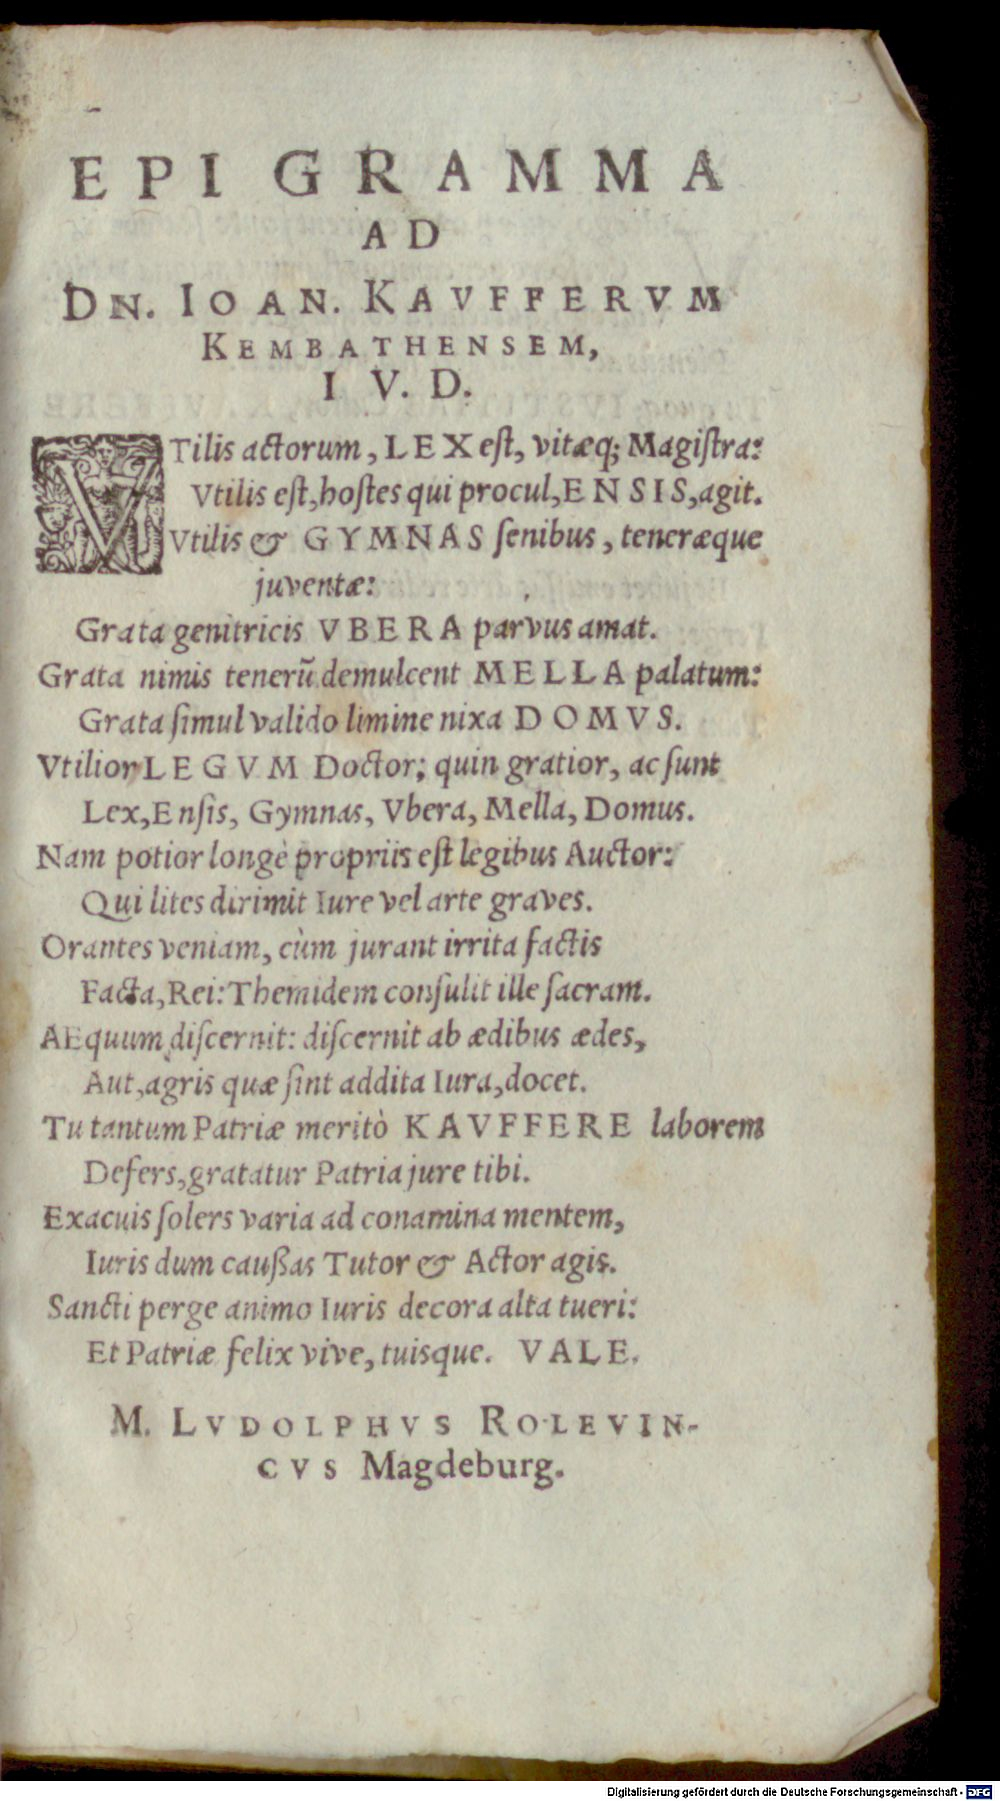 EPIGRAMMA
AD
DN. IOAN. KAVFFERVM
KEMBATHENSEM,
I V. D.
VTilis actorum, LEX eſt, vitæq; Magiſtra:
Vtilis eſt, hoſtes qui procul, ENSIS, agit.
Vtilis & GYMNAS ſenibus, teneræque
juventæ:
Grata genitricis VBERA parvus amat.
Grata nimis tenerũ demulcent MELLA palatum:
Grata ſimul valido limine nixa DOMVS.
Vtilior LEGVM Doctor; quin gratior, ac ſunt
Lex, Enſis, Gymnas, Vbera, Mella, Domus.
Nam potior longè propriis eſt legibus Auctor:
Qui lites dirimit Iure vel arte graves.
Orantes veniam, cùm jurant irrita factis
Facta, Rei: Themidem conſulit ille ſacram.
AEquum diſcernit: diſcernit ab ædibus ædes,
Aut, agris quæ ſint addita Iura, docet.
Tu tantum Patriæ meritò KAVFFERE laborem
Defers, gratatur Patria jure tibi.
Exacuis ſolers varia ad conamina mentem,
Iuris dum cauſſas Tutor & Actor agis.
Sancti perge animo Iuris decora alta tueri:
Et Patriæ felix vive, tuisque. VALE.
M. LVDOLPHVS ROLEVIN-
CVS Magdeburg.
Digitalisierung gefördert durch die Deutsche Forschungsgemeinschaft - DFG